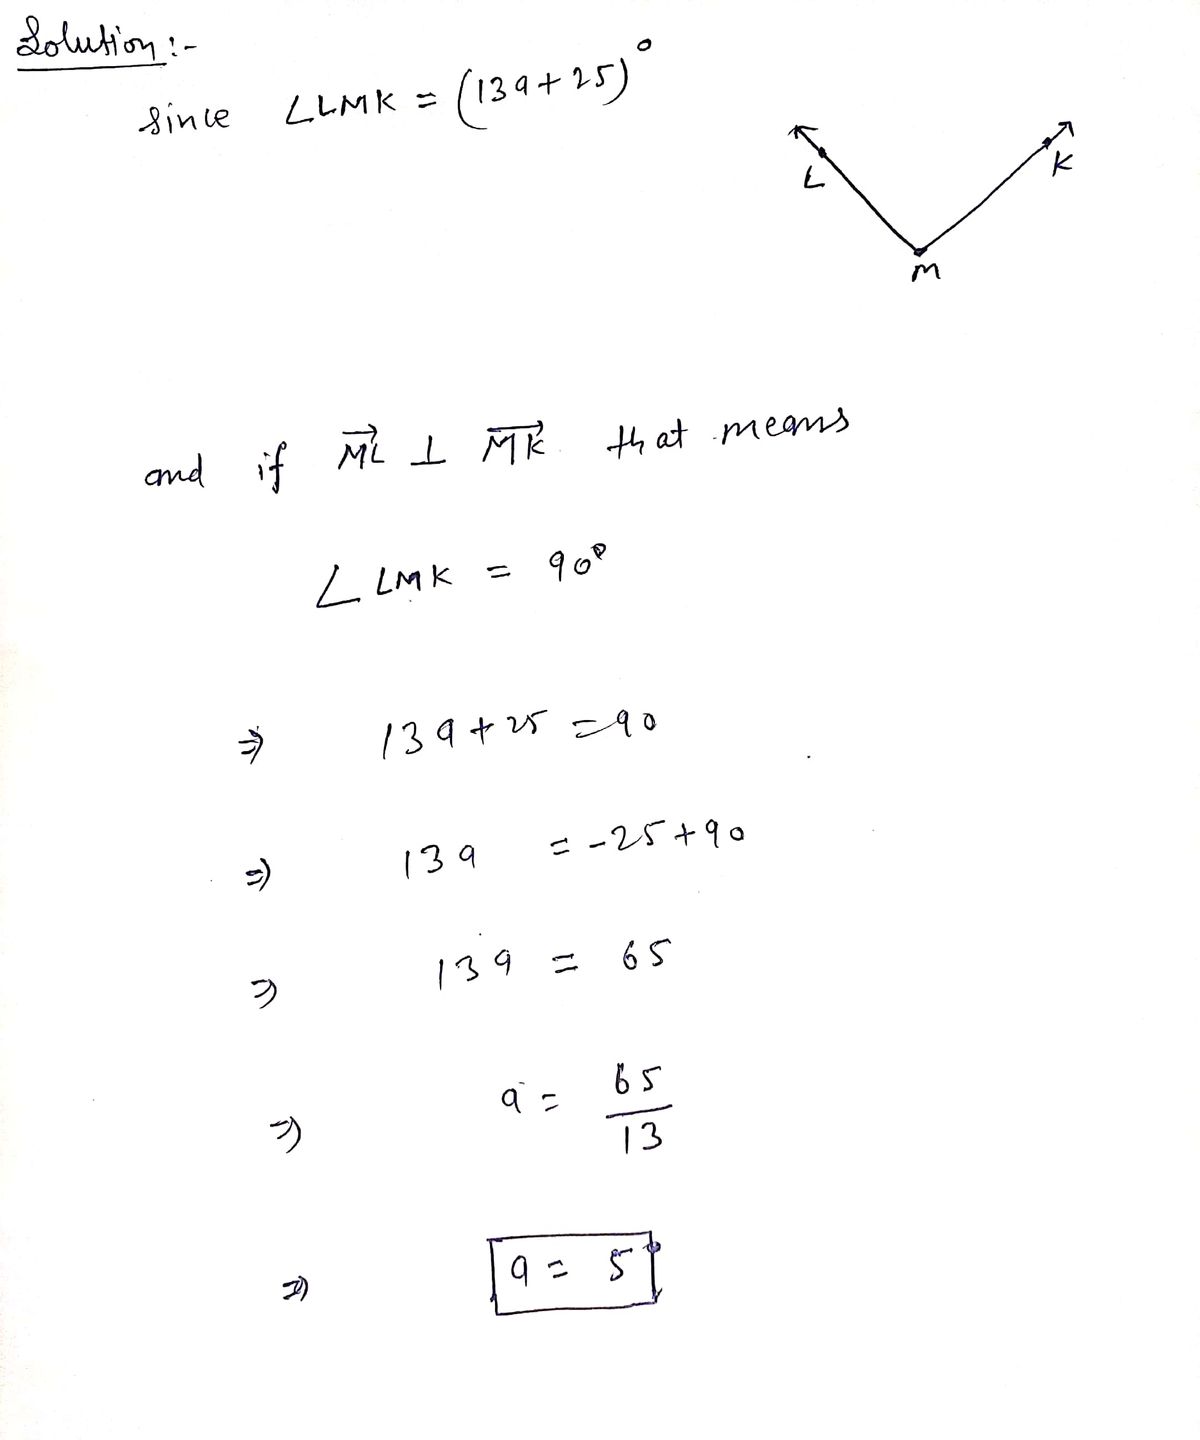 Solution:-
since ∠LMK = (13a+25)°
L
K
M
and if ML⃗ ⊥ MK⃗ that means
∠LMK = 90°
⇒ 13a+25 =90
⇒ 13a = -25+90
⇒ 13a = 65
⇒ a = 65/13
⇒ a = 5